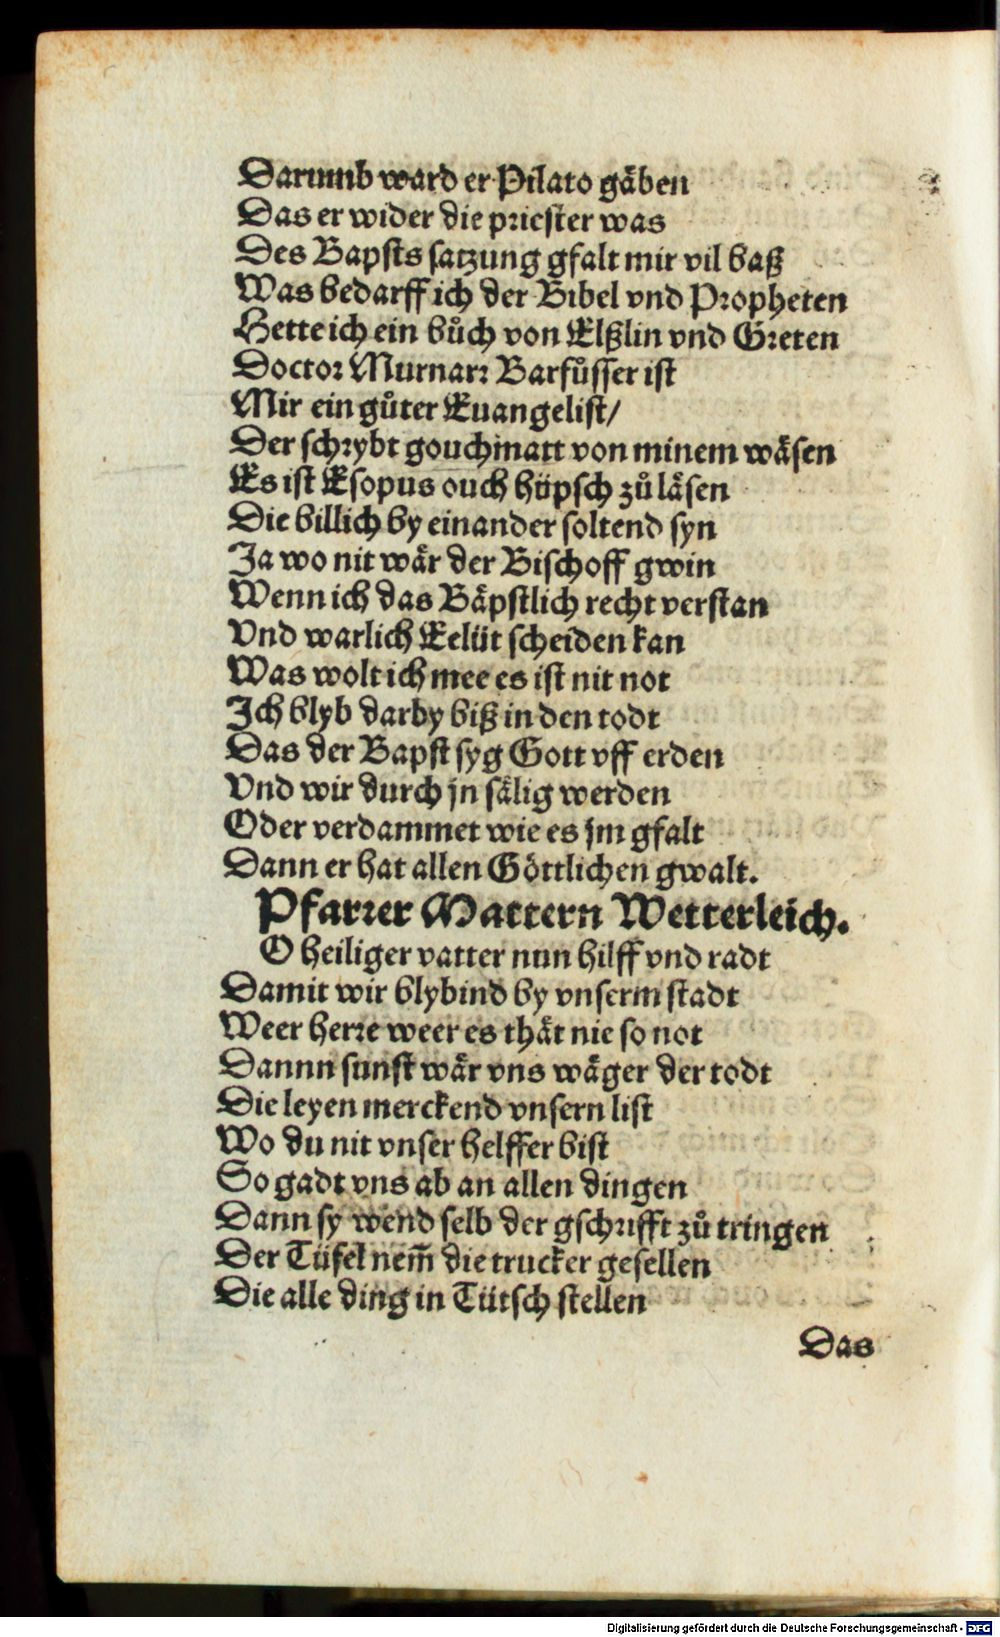 Darumb ward er Pilato gäben
Das er wider die priester was
Des Bapsts satzung gfalt mir vil baß
Was bedarff ich der Bibel vnd Propheten
Hette ich ein bůch von Elßlin vnd Greten
Doctor Murnarr Barfůsser ist
Mir ein gůter Euangelist/
Der schrybt gouchmatt von minem wäsen
Es ist Esopus ouch hüpsch zů läsen
Die billich by einander soltend syn
Ja wo nit wär der Bischoff gwin
Wenn ich das Bäpstlich recht verstan
Vnd warlich Eelüt scheiden kan
Was wolt ich mee es ist nit not
Ich blyb darby biß in den todt
Das der Bapst syg Gott vff erden
Vnd wir durch jn sälig werden
Oder verdammet wie es jm gfalt
Dann er hat allen Göttlichen gwalt.
Pfarrer Mattern Wetterleich.
O heiliger vatter nun hilff vnd radt
Damit wir blybind by vnserm stadt
Weer herre weer es thät nie so not
Dannn sunst wär vns wäger der todt
Die leyen merckend vnsern list
Wo du nit vnser helffer bist
So gadt vns ab an allen dingen
Dann sy wend selb der gschrifft zů tringen
Der Tüfel nem̃ die trucker gesellen
Die alle ding in Tütsch stellen
Das
Digitalisierung gefördert durch die Deutsche Forschungsgemeinschaft - DFG